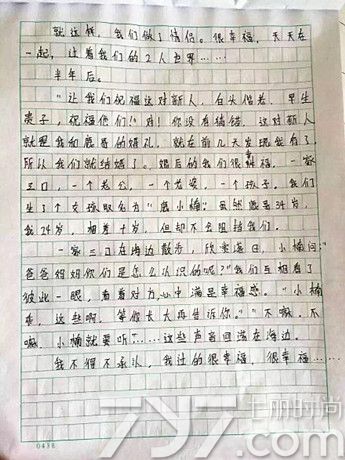 就这样，我们做了情侣。很幸福，天天在
一起，过着我们的2人世界……
半年后。
"让我们祝福这对新人，白头偕老，早生
贵子，祝福他们！"对！你没有搞错，这对新人
就是我和鹿哥的婚礼，就在前几天发现我有了，
所以我们就结婚了。婚后的我们很幸福，一家
三口，一个老公，一个老婆，一个孩子。我们
生了个女孩取名为"鹿小楠"虽然鹿哥34岁，
我24岁，相差十岁，但却不会阻挡我们。
一家三口在海边散步，欣赏落日，小楠问："
爸爸妈妈你们是怎么认识的呢？"我们互相看了
彼此一眼，看着对方，心中满是幸福感。"小楠
乖，这些啊，等你长大再告诉你。""不嘛，不
嘛，小楠就要听"……这些声音回荡在海边。
我不得不承认，我过的很幸福，很幸福……
0438
7y7.com
七丽时尚